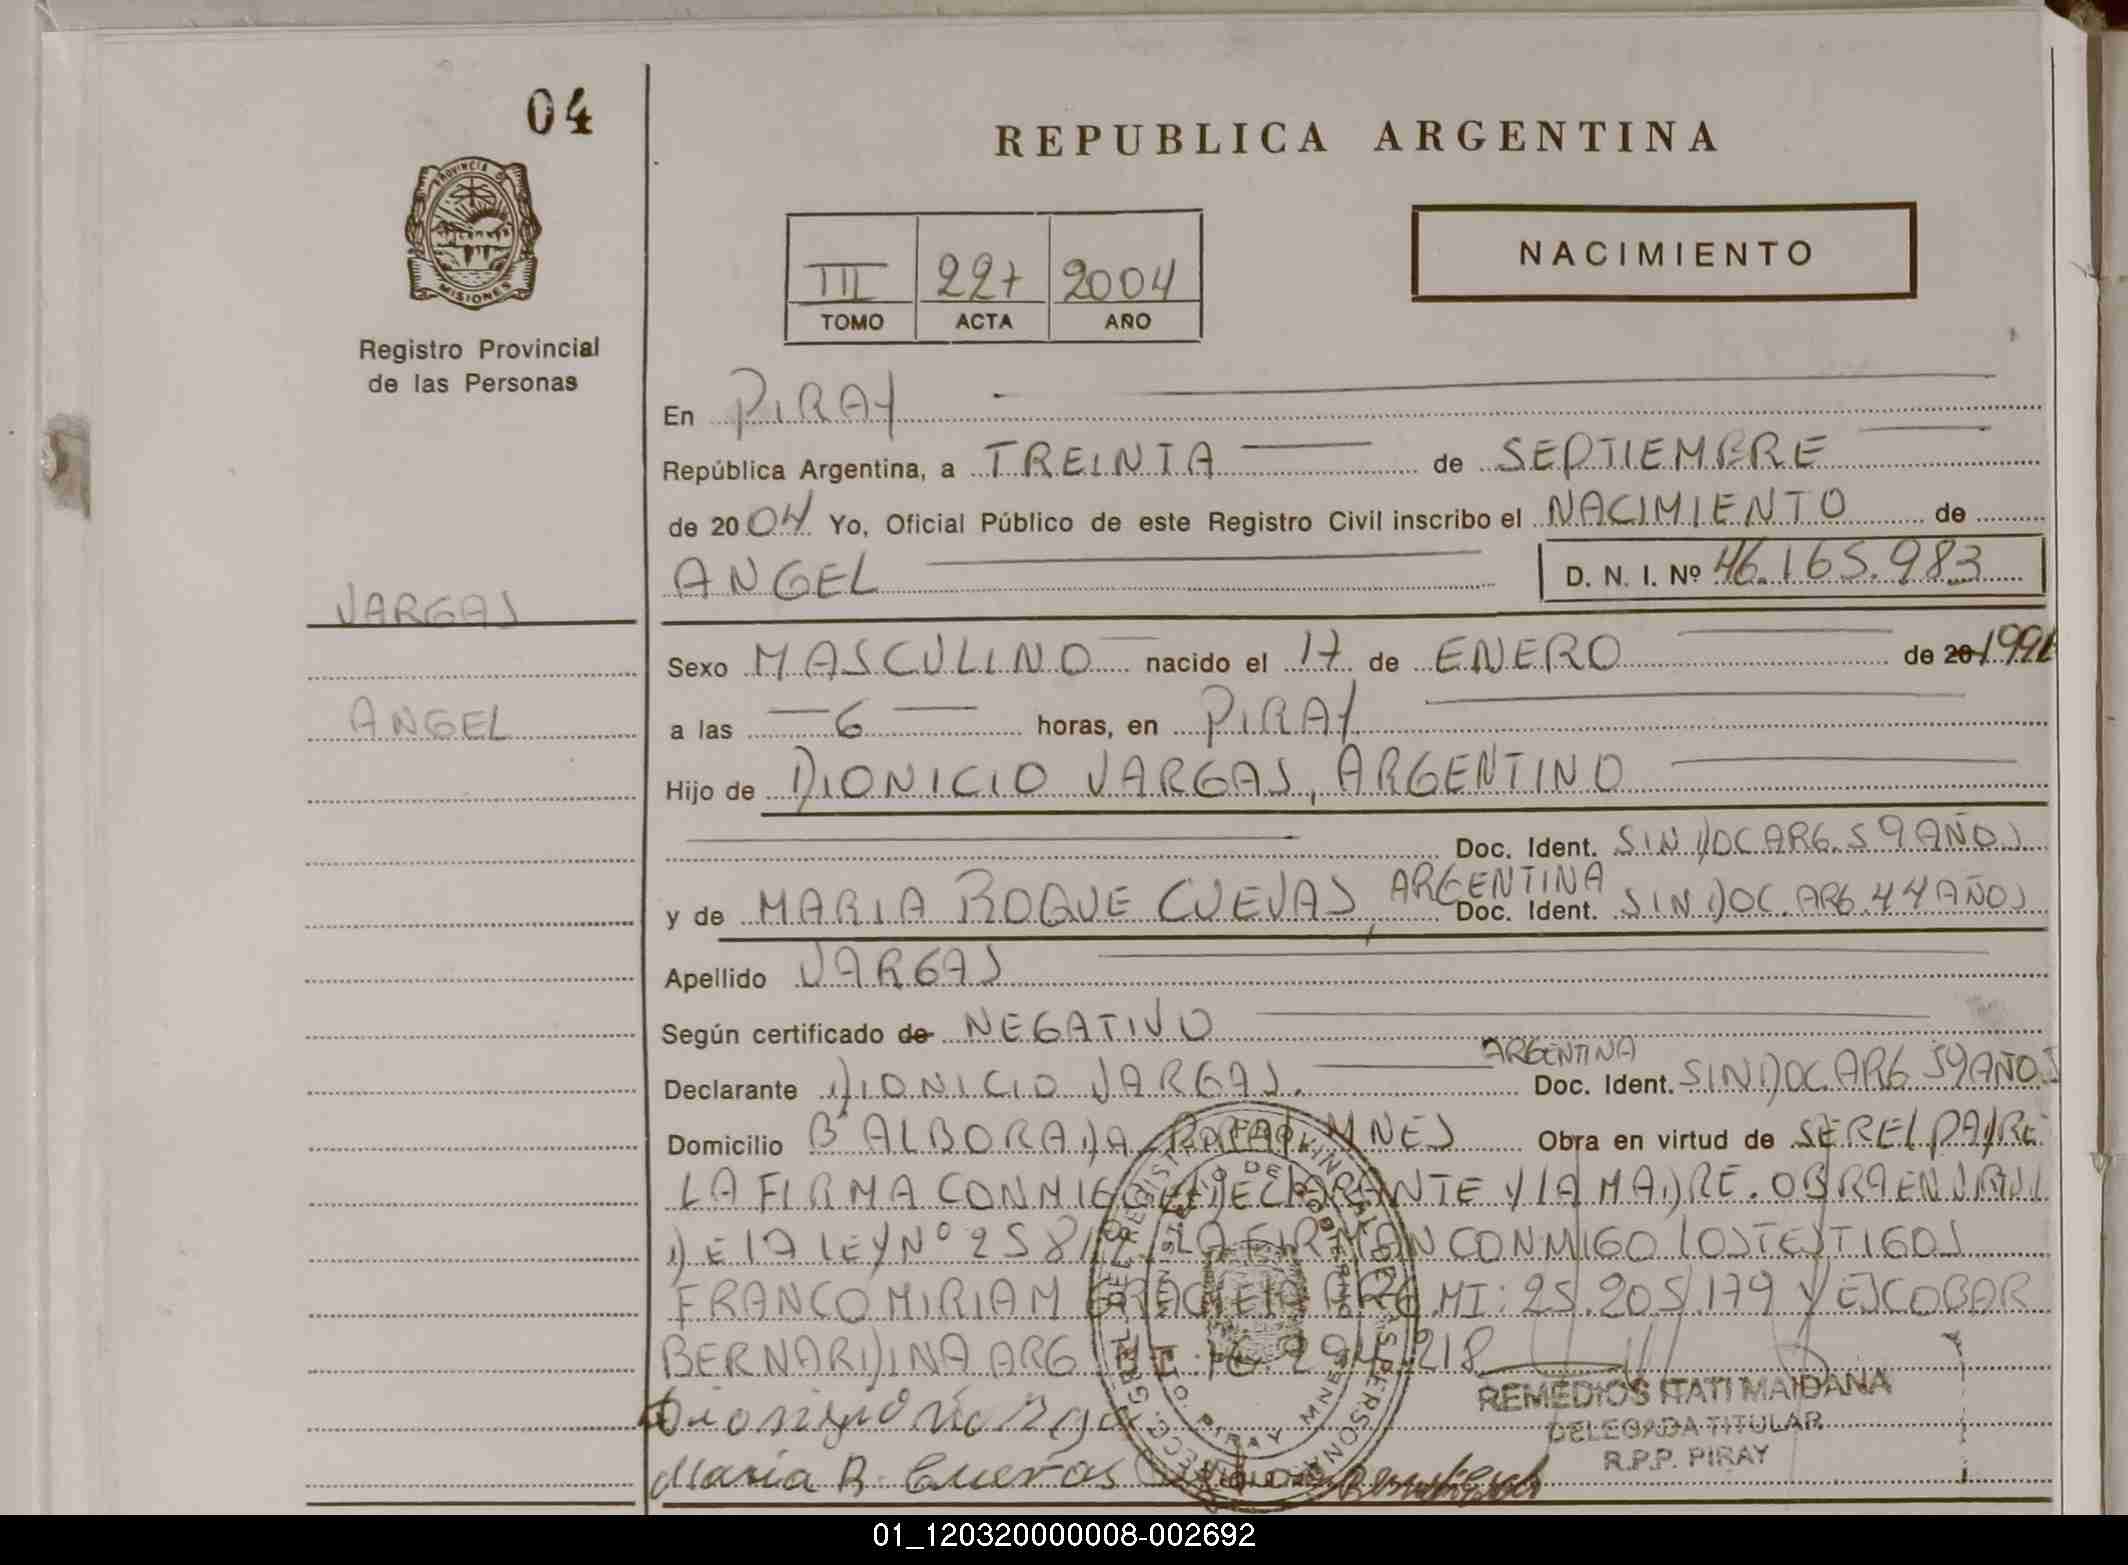 04
REPUBLICA ARGENTINA
PROVINCIA D
MISIONES
Registro Provincial
de las Personas
III 227 2004
TOMO ACTA AÑO
NACIMIENTO
En PIRAY
República Argentina, a TREINTA de SEPTIEMBRE
de 2004 Yo, Oficial Público de este Registro Civil inscribo el NACIMIENTO de
ANGEL D. N. I. Nº 46.165.983
VARGAS
ANGEL
Sexo MASCULINO nacido el 17 de ENERO de 20 199
a las 6 horas, en PIRAY
Hijo de DIONICIO VARGAS, ARGENTINO
Doc. Ident. SIN DOC ARG. 59 AÑOS
y de MARIA ROQUE CUEVAS, ARGENTINA Doc. Ident. SIN DOC. ARG. 44 AÑOS
Apellido VARGAS
Según certificado de NEGATIVO
Declarante DIONICIO VARGAS. ARGENTINA Doc. Ident. SIN DOC ARG 59 AÑOS
Domicilio Bº ALBORADA PIRAY MNES Obra en virtud de SER EL PADRE
LA FIRMA CONMIGO EL DECLARANTE Y LA MADRE. OBRA EN
DE LA LEY Nº 258 LA FIRMAN CONMIGO LOS TESTIGOS
FRANCO MIRIAM GRACIELA ARG MI: 25.205.179 Y ESCOBAR
BERNARDINA ARG 218
Maria R. Cuevas
REMEDIOS ITATI MAIDANA
DELEGADA TITULAR
R.P.P. PIRAY
01_120320000008-002692